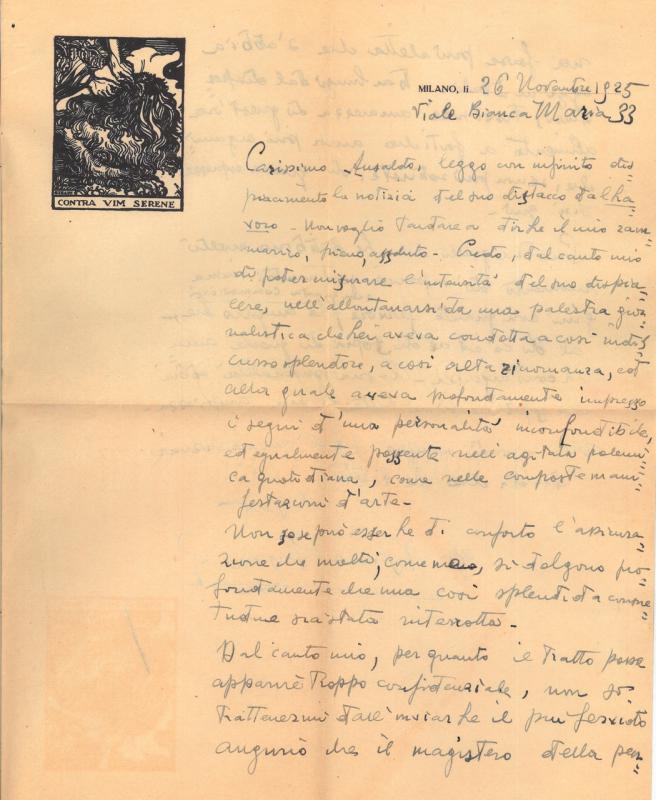 CONTRA VIM SERENE
MILANO, li 26 Novembre 1925
Viale Bianca Maria 33
Carissimo Ansaldo, leggo con infinito dis=
piacimento la notizia del suo distacco dal "La
voro - Non voglio tardare a dirLe il mio ram=
marico, pieno, assoluto - Credo, dal canto mio
di poter misurare l'intensità del suo dispia=
cere, nell'allontanarsi da una palestra gior=
nalistica che Lei aveva condotta a così indis=
cusso splendore, a così alta rinomanza, ed
alla quale aveva profondamente impresso
i segni d'una personalità inconfondibile,
ed egualmente possente nell'agitata polemi=
ca quotidiana, come nelle composte mani=
festazioni d'arte -
Non so se può esserLe di conforto l'assicura=
zione che molti, come me, si dolgono pro=
fondamente che una così splendida consue=
tudine sia stata interrotta -
Dal canto mio, per quanto il tratto possa
apparirLe troppo confidenziale, non so
trattenermi dall'inviarLe il più fervido
augurio che il magistero della pen=